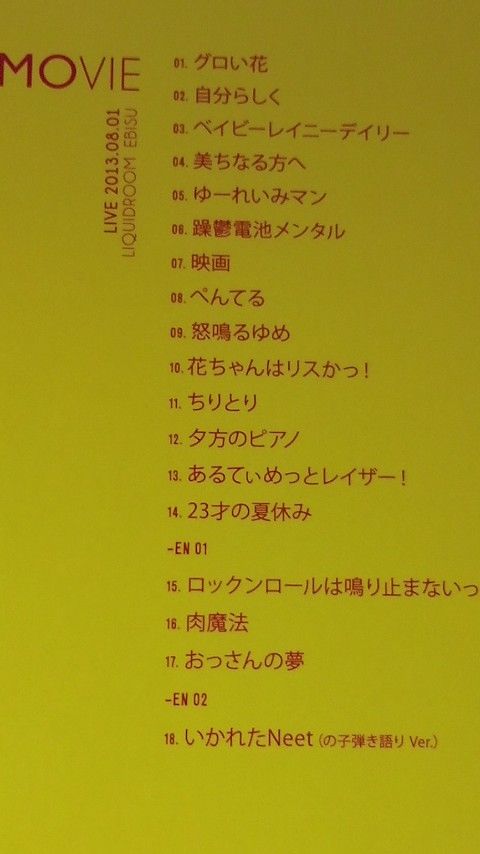 MOVIE
LIVE 2013.08.01
LIQUIDROOM EBISU
01. グロい花
02. 自分らしく
03. ベイビーレイニーデイリー
04. 美ちなる方へ
05. ゆーれいみマン
06. 躁鬱電池メンタル
07. 映画
08. ぺんてる
09. 怒鳴るゆめ
10. 花ちゃんはリスかっ！
11. ちりとり
12. 夕方のピアノ
13. あるてぃめっとレイザー！
14. 23才の夏休み
-EN 01
15. ロックンロールは鳴り止まないっ
16. 肉魔法
17. おっさんの夢
-EN 02
18. いかれたNeet (の子弾き語り Ver.)